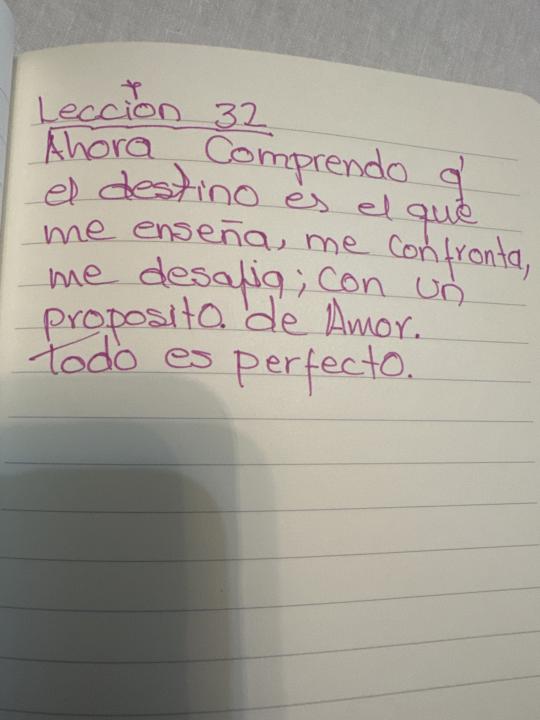 Leccion 32
Ahora Comprendo q'
el destino es el que
me enseña, me confronta,
me desafia; con un
proposito. de Amor.
Todo es perfecto.